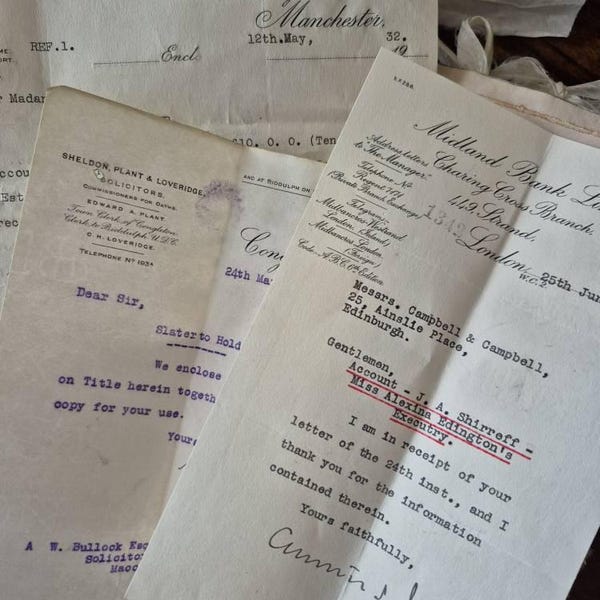 Manchester,
REF.1.
Encl
12th.May,
32.
19
Madam
£10. O. O. (Ten
SHELDON, PLANT & LOVERIDGE,
SOLICITORS.
COMMISSIONERS FOR OATHS.
EDWARD A. PLANT.
Town Clerk of Congleton.
Clerk to Biddulph U.D.C.
C. H. LOVERIDGE.
TELEPHONE No 193A
AND AT BIDDULPH ON
24th
Dear Sir,
Slater to Hold
We enclose
on Title herein
copy for your use.
A W. Bullock Esq
Midland Bank
Charing Cross Branch.
449, Strand,
London,
W.C.2.
Address letters
to The Manager.
Telephone No
(Private Branch Exchange)
Telegrams
London. (Inland)
(Foreign)
Code - A.B.C. 6th Edition
25th
Messrs. Campbell & Campbell,
25, Ainslie Place,
Edinburgh.
Gentlemen,
Account - J. A. Shirreff -
Miss Alexina Edington's
Executry.
I am in receipt of your
letter of the 24th inst., and I
thank you for the information
contained therein.
Yours faithfully,